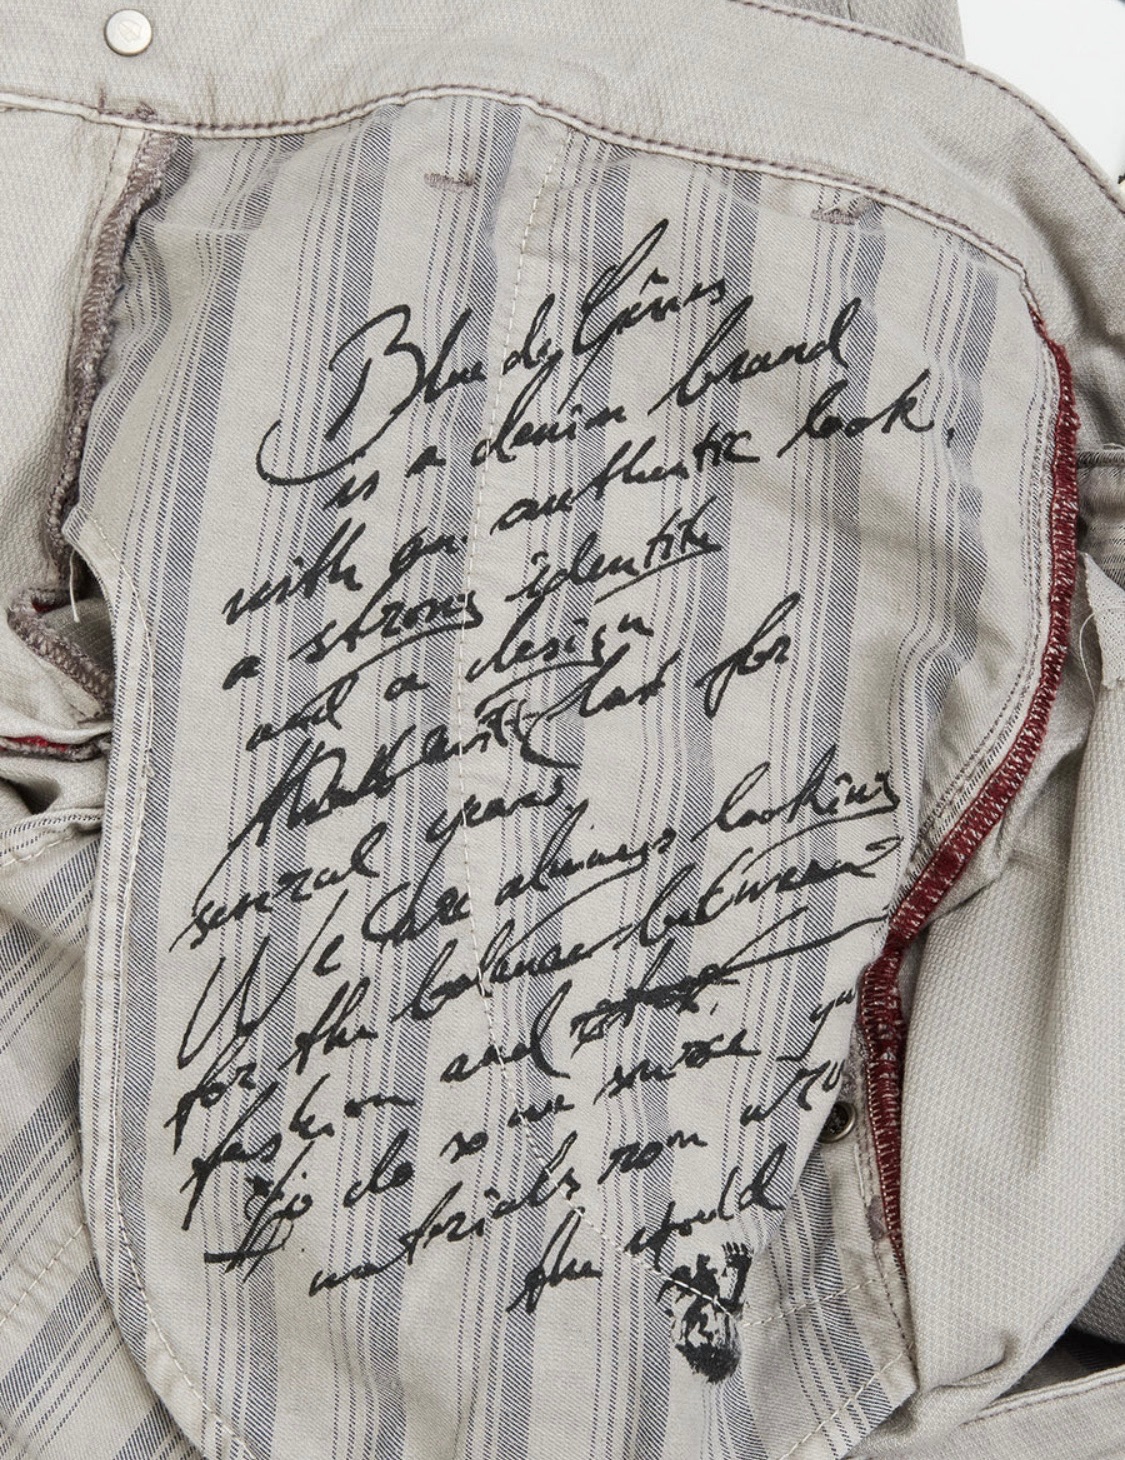 Blue de Gênes
is a denim brand
with an authentic look,
a strong identity
and a design
that lasts for
several years.
We are always looking
for the balance between
fashion and
To do so we source
materials from
the world